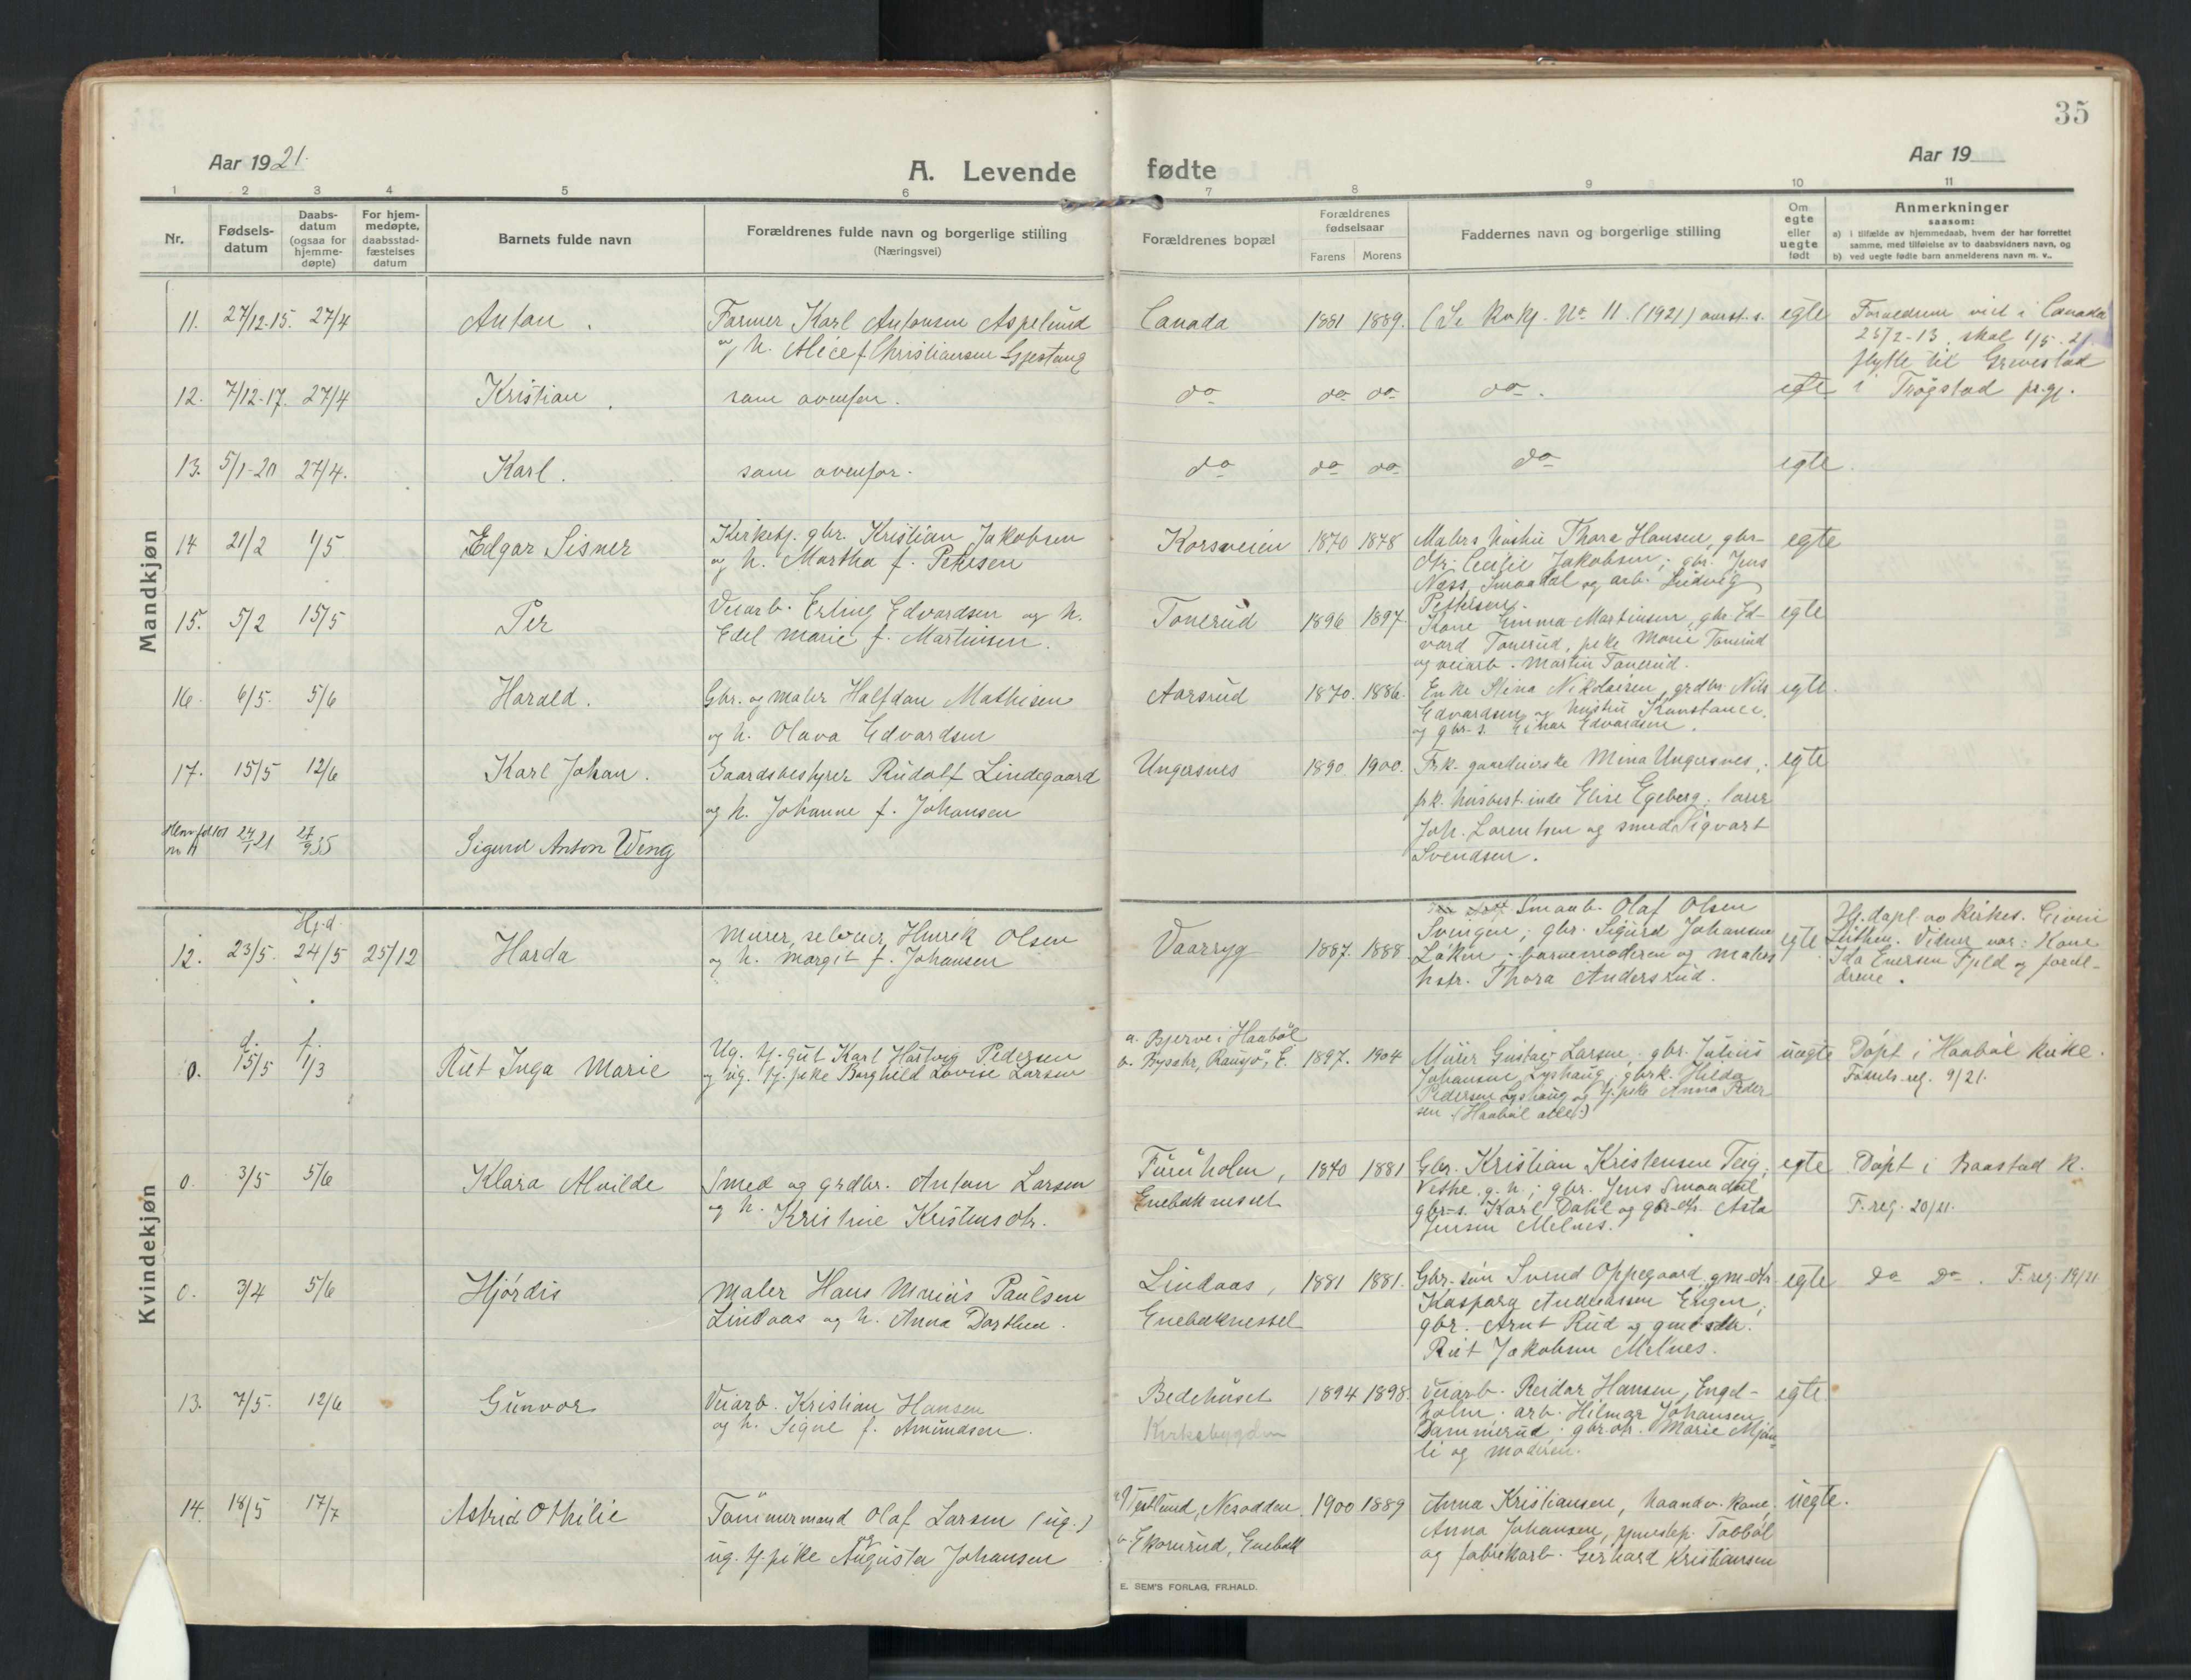 35
Aar 1921.
A. Levende fødte
Aar 19
1 2 3 4 5 6 7 8 9 10 11
Nr.
Fødsels-
datum
Daabs-
datum
(ogsaa for
hjemme-
døpte)
For hjem-
medøpte,
daabsstad-
fæstelses
datum
Barnets fulde navn
Forældrenes fulde navn og borgerlige stilling
(Næringsvei)
Forældrenes bopæl
Forældrenes
fødselsaar
Farens Morens
Faddernes navn og borgerlige stilling
Om
egte
eller
uegte
født
Anmerkninger
saasom:
a) i tilfælde av hjemmedaab, hvem der har forrettet
samme, med tilføielse av to daabsvidners navn, og
b) ved uegte fødte barn anmelderens navn m. v..
Mandkjøn
11. 27/12-15. 27/4 Anton. Farmer Karl Antonsen Aspelund
og h. Alice f. Christiansen Gjestang
Canada 1881 1889. (Se kvkj. No 11. (1921) egte
Forældrene viet i Canada
25/2-13. skal 1/5-21
flytte til Grevestad
i Trøgstad pr.gj.
12. 7/12-17. 27/4 Kristian. som ovenfor. do do do do. egte
13. 5/1-20 27/4. Karl. som ovenfor. do do do do egte.
14 21/2 1/5 Edgar Sisner Kirketj. gbr. Kristian Jakobsen
og h. Martha f. Petersen
Korsveien 1870 1878 Malers hustru Thora Hansen, gbr-
dtr. Cecilie Jakobsen; gbr. Jens
Næss, Smaadal og arb. Ludvig
Pettersen.
egte
15. 5/2 15/5 Per Veiarb. Erling Edvardsen og h.
Edel Marie f. Martinsen.
Tonerud 1896 1897. Kone Emma Martinsen, gbr. Ed-
vard Tonerud, pike Marie Tonerud
og veiarb. Martin Tonerud.
egte
16. 6/5. 5/6 Harald. Gbr. og maler Halfdan Mathisen
og h. Olava Edvardsen
Aarsrud 1870. 1886. Enke Stina Nikolaisen, grdbr. Nils
Edvardsen og hustru Konstance,
og gbr-s. Einar Edvardsen.
egte.
17. 15/5 12/6 Karl Johan. Gaardsbestyrer Rudolf Lindegaard
og h. Johanne f. Johansen
Ungersnes 1890. 1900. Frk. gaardeierske Mina Ungersnes,
frk. husbest.inde Elise Egeberg;
Joh. Lorentsen og smed Sigvart
Svendsen.
egte
24/1 21 27/9 35 Sigurd Anton Weng
Kvindekjøn
12. 23/5. Hj.d. 24/5 25/12 Harda Murer, selveier Henrik Olsen
og h. Margit f. Johansen
Vaarryg 1887. 1888. Smaab. Olaf Olsen
Svingen; gbr. Sigurd Johansen
Løken; barnemoderen og malers
hstr. Thora Andersrud.
egte
Hj.døpt av kirkes.
Vidner var: Kone
Ida Evensen Fjeld og foræl-
drene.
0. 15/5 1/3 Rut Inga Marie Ug. tj. gut Karl Hartvig Pedersen
og ug. tj. pike Borghild Lovise Larsen
a. Bjerve i Haabøl
b. Bysætr, Rausjø, E.
1897. 1904 Murer Gustav Larsen, gbr. Julius
Johansen Lyshaug, gbrk. Hilda
Pedersen Lyshaug og tj. pike Anna Peder
sen (Haabøl alle)
uegte Døpt i Haabøl kirke.
Fødsels-reg. 9/21.
0. 3/5 5/6 Klara Alvilde Smed og grdbr. Anton Larsen
og h. Kristine Kristensdtr.
Furuholm,
Enebaknesset
1840 1881 Gbr. Kristian Kristensen Teig,
g. h.; gbr. Jens Smaadal
gbr-s. Karl Dahl og gbr-dtr. Asta
Jensen Melnes.
egte Døpt i Baastad k.
F.reg. 20/21.
0. 3/4 5/6 Hjørdis Maler Hans Marius Paulsen
Lindaas og h. Anna Dorthea.
Lindaas,
Enebaknesset
1881 1881. Gbr-søn Svend Oppegaard,
Kaspara Andreassen Engen;
gbr. Arnt Rud og
Rut Jakobsen Melnes.
egte do do. F.reg. 19/21
13. 7/5. 12/6 Gunvor Veiarb. Kristian Hansen
og h. Signe f. Amundsen.
Bedehuset
Kirkebygden
1894 1898. Veiarb. Reidar Hansen, Engel-
holm; arb. Hilmar Johansen
Dammerud; gbr.dtr. Marie Mjøn-
li og moderen.
egte.
14. 18/5 17/7 Astrid Othilie Tømmermand Olaf Larsen (ug.)
og
ug. tj. pike Augusta Johansen
a. Vestlund, Nesodden
b. Ekornrud, Enebakk
1900 1889 Anna Kristiansen, haandv. kone,
Anna Johansen, Tobbøl
og fabrikarb. Gerhard Kristiansen
uegte.
E. SEM'S FORLAG, FR.HALD.